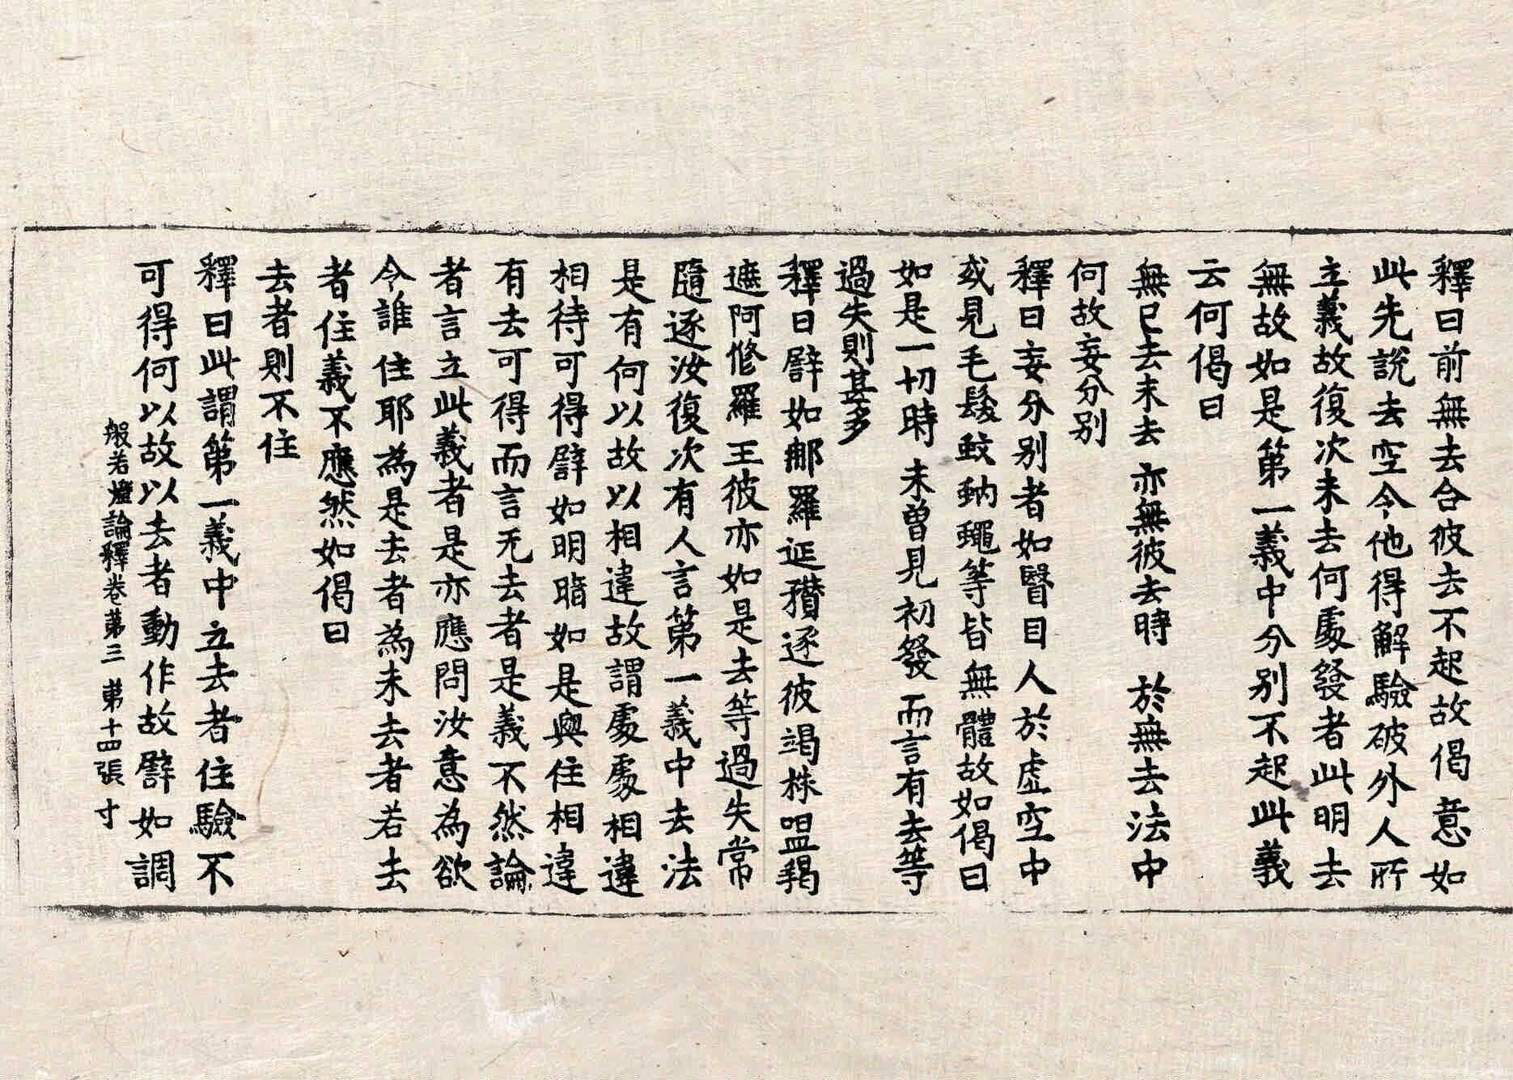 釋曰前無去合彼去不起故偈意如
此先說去空令他得解驗破外人所
立義故復次未去何處發者此明去
無故如是第一義中分別不起此義
云何偈曰
無已去未去 亦無彼去時 於無去法中
何故妄分別
釋曰妄分別者如瞖目人於虛空中
或見毛髮蚊蚋蠅等皆無體故如偈曰
如是一切時 未曾見初發 而言有去等
過失則甚多
釋曰譬如那羅延穳逐彼竭株呾羯
遮阿修羅王彼亦如是去等過失常
隨逐汝復次有人言第一義中去法
是有何以故以相違故謂處處相違
相待可得譬如明暗如是與住相違
有去可得而言无去者是義不然論
者言立此義者是亦應問汝意為欲
令誰住耶為是去者為未去者若去
者住義不應然如偈曰
去者則不住
釋曰此謂第一義中立去者住驗不
可得何以故以去者動作故譬如調
般若燈論釋卷第三 第十四張 寸